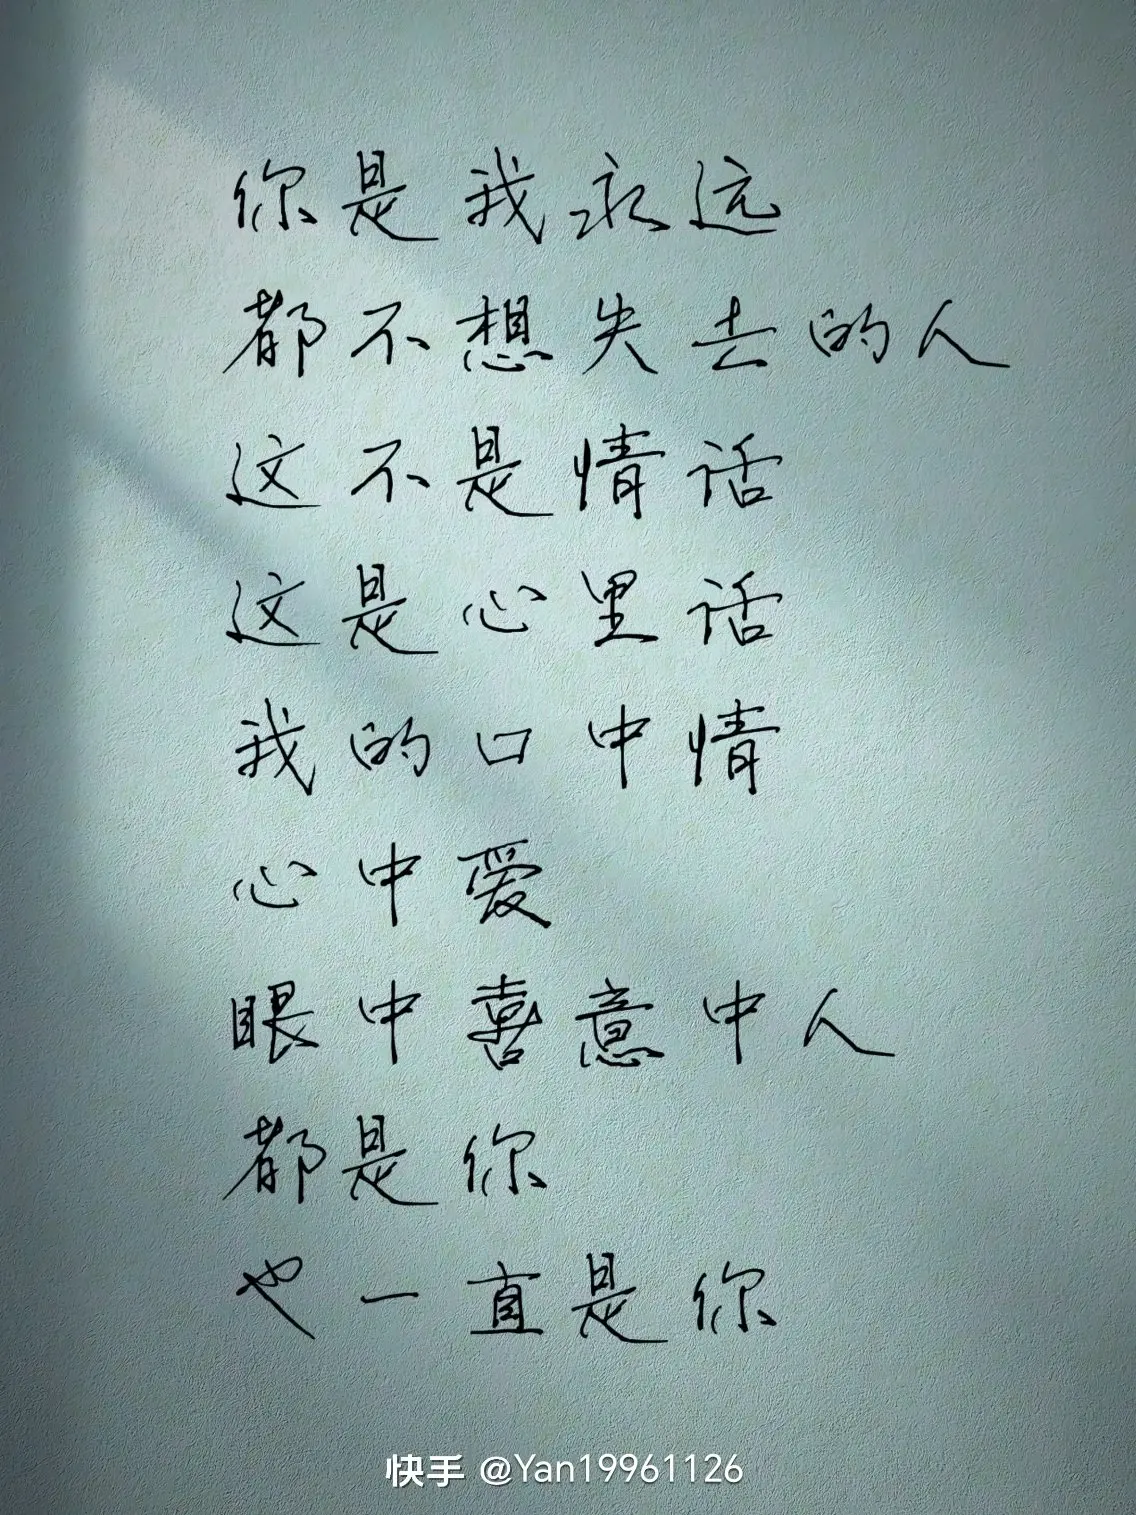 你是我永远
都不想失去的人
这不是情话
这是心里话
我的口中情
心中爱
眼中喜意中人
都是你
也一直是你
快手 @Yan19961126